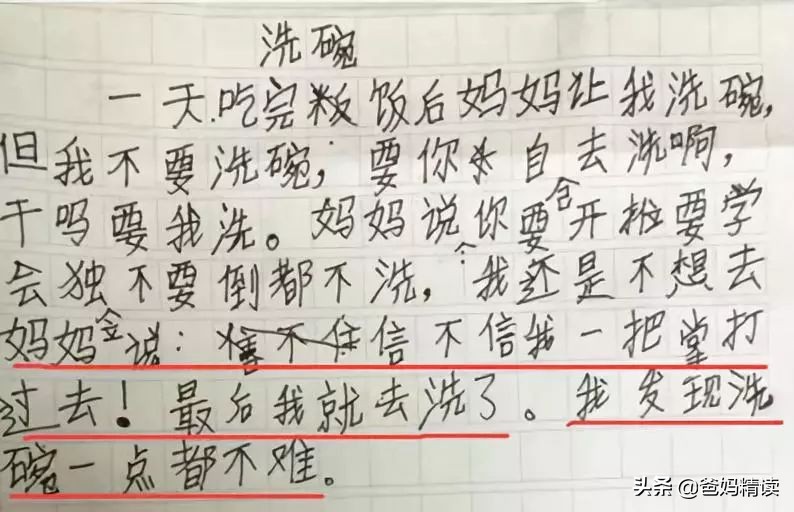 洗碗
一天.吃完饭后妈妈让我洗碗,
但我不要洗碗;要你自去洗啊,
干吗要我洗。妈妈说你要开
要学
会独不要倒都不洗,我还是不想去
妈妈说:信不信我一把掌打
过去!最后我就去洗了。我发现洗
碗一点都不难。
头条 @爸妈精读